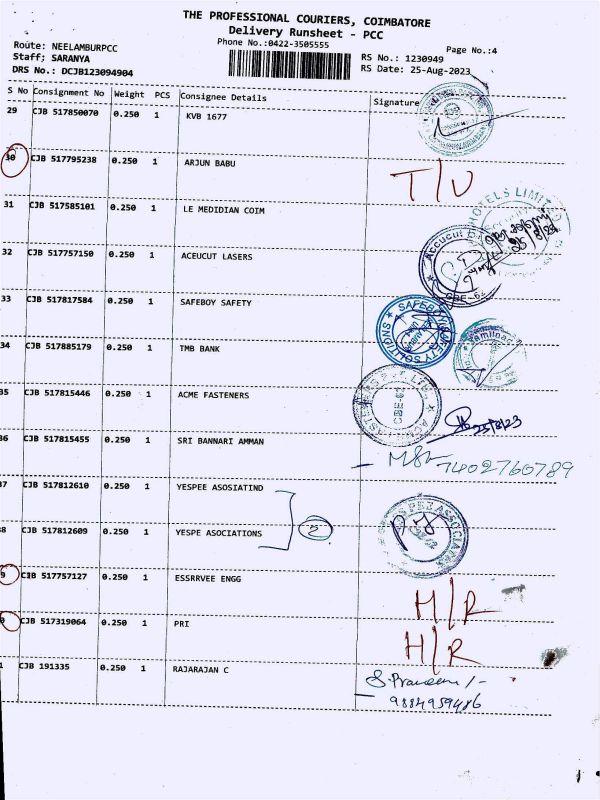 THE PROFESSIONAL COURIERS, COIMBATORE
Delivery Runsheet - PCC
Phone No.:0422-3505555
Page No.:4
Route: NEELAMBURPCC
Staff: SARANYA
DRS No.: DCJB123094904
RS No.: 1230949
RS Date: 25-Aug-2023
S No Consignment No Weight PCS Consignee Details Signature
29 CJB 517850070 0.250 1 KVB 1677
30 CJB 517795238 0.250 1 ARJUN BABU T/U
31 CJB 517585101 0.250 1 LE MEDIDIAN COIM HOTELS LIMITED
32 CJB 517757150 0.250 1 ACEUCUT LASERS Accucut
33 CJB 517817584 0.250 1 SAFEBOY SAFETY SAFEBOY SAFETY SOLUTIONS
34 CJB 517885179 0.250 1 TMB BANK
35 CJB 517815446 0.250 1 ACME FASTENERS CBE-62 25/8/23
36 CJB 517815455 0.250 1 SRI BANNARI AMMAN 7402760789
37 CJB 517812610 0.250 1 YESPEE ASOSIATIND
38 CJB 517812609 0.250 1 YESPE ASOCIATIONS PEE ASSOCIATES
9 CJB 517757127 0.250 1 ESSRRVEE ENGG H/R
0 CJB 517319064 0.250 1 PRI H/R
1 CJB 191335 0.250 1 RAJARAJAN C S. Praveen /-
9884959486